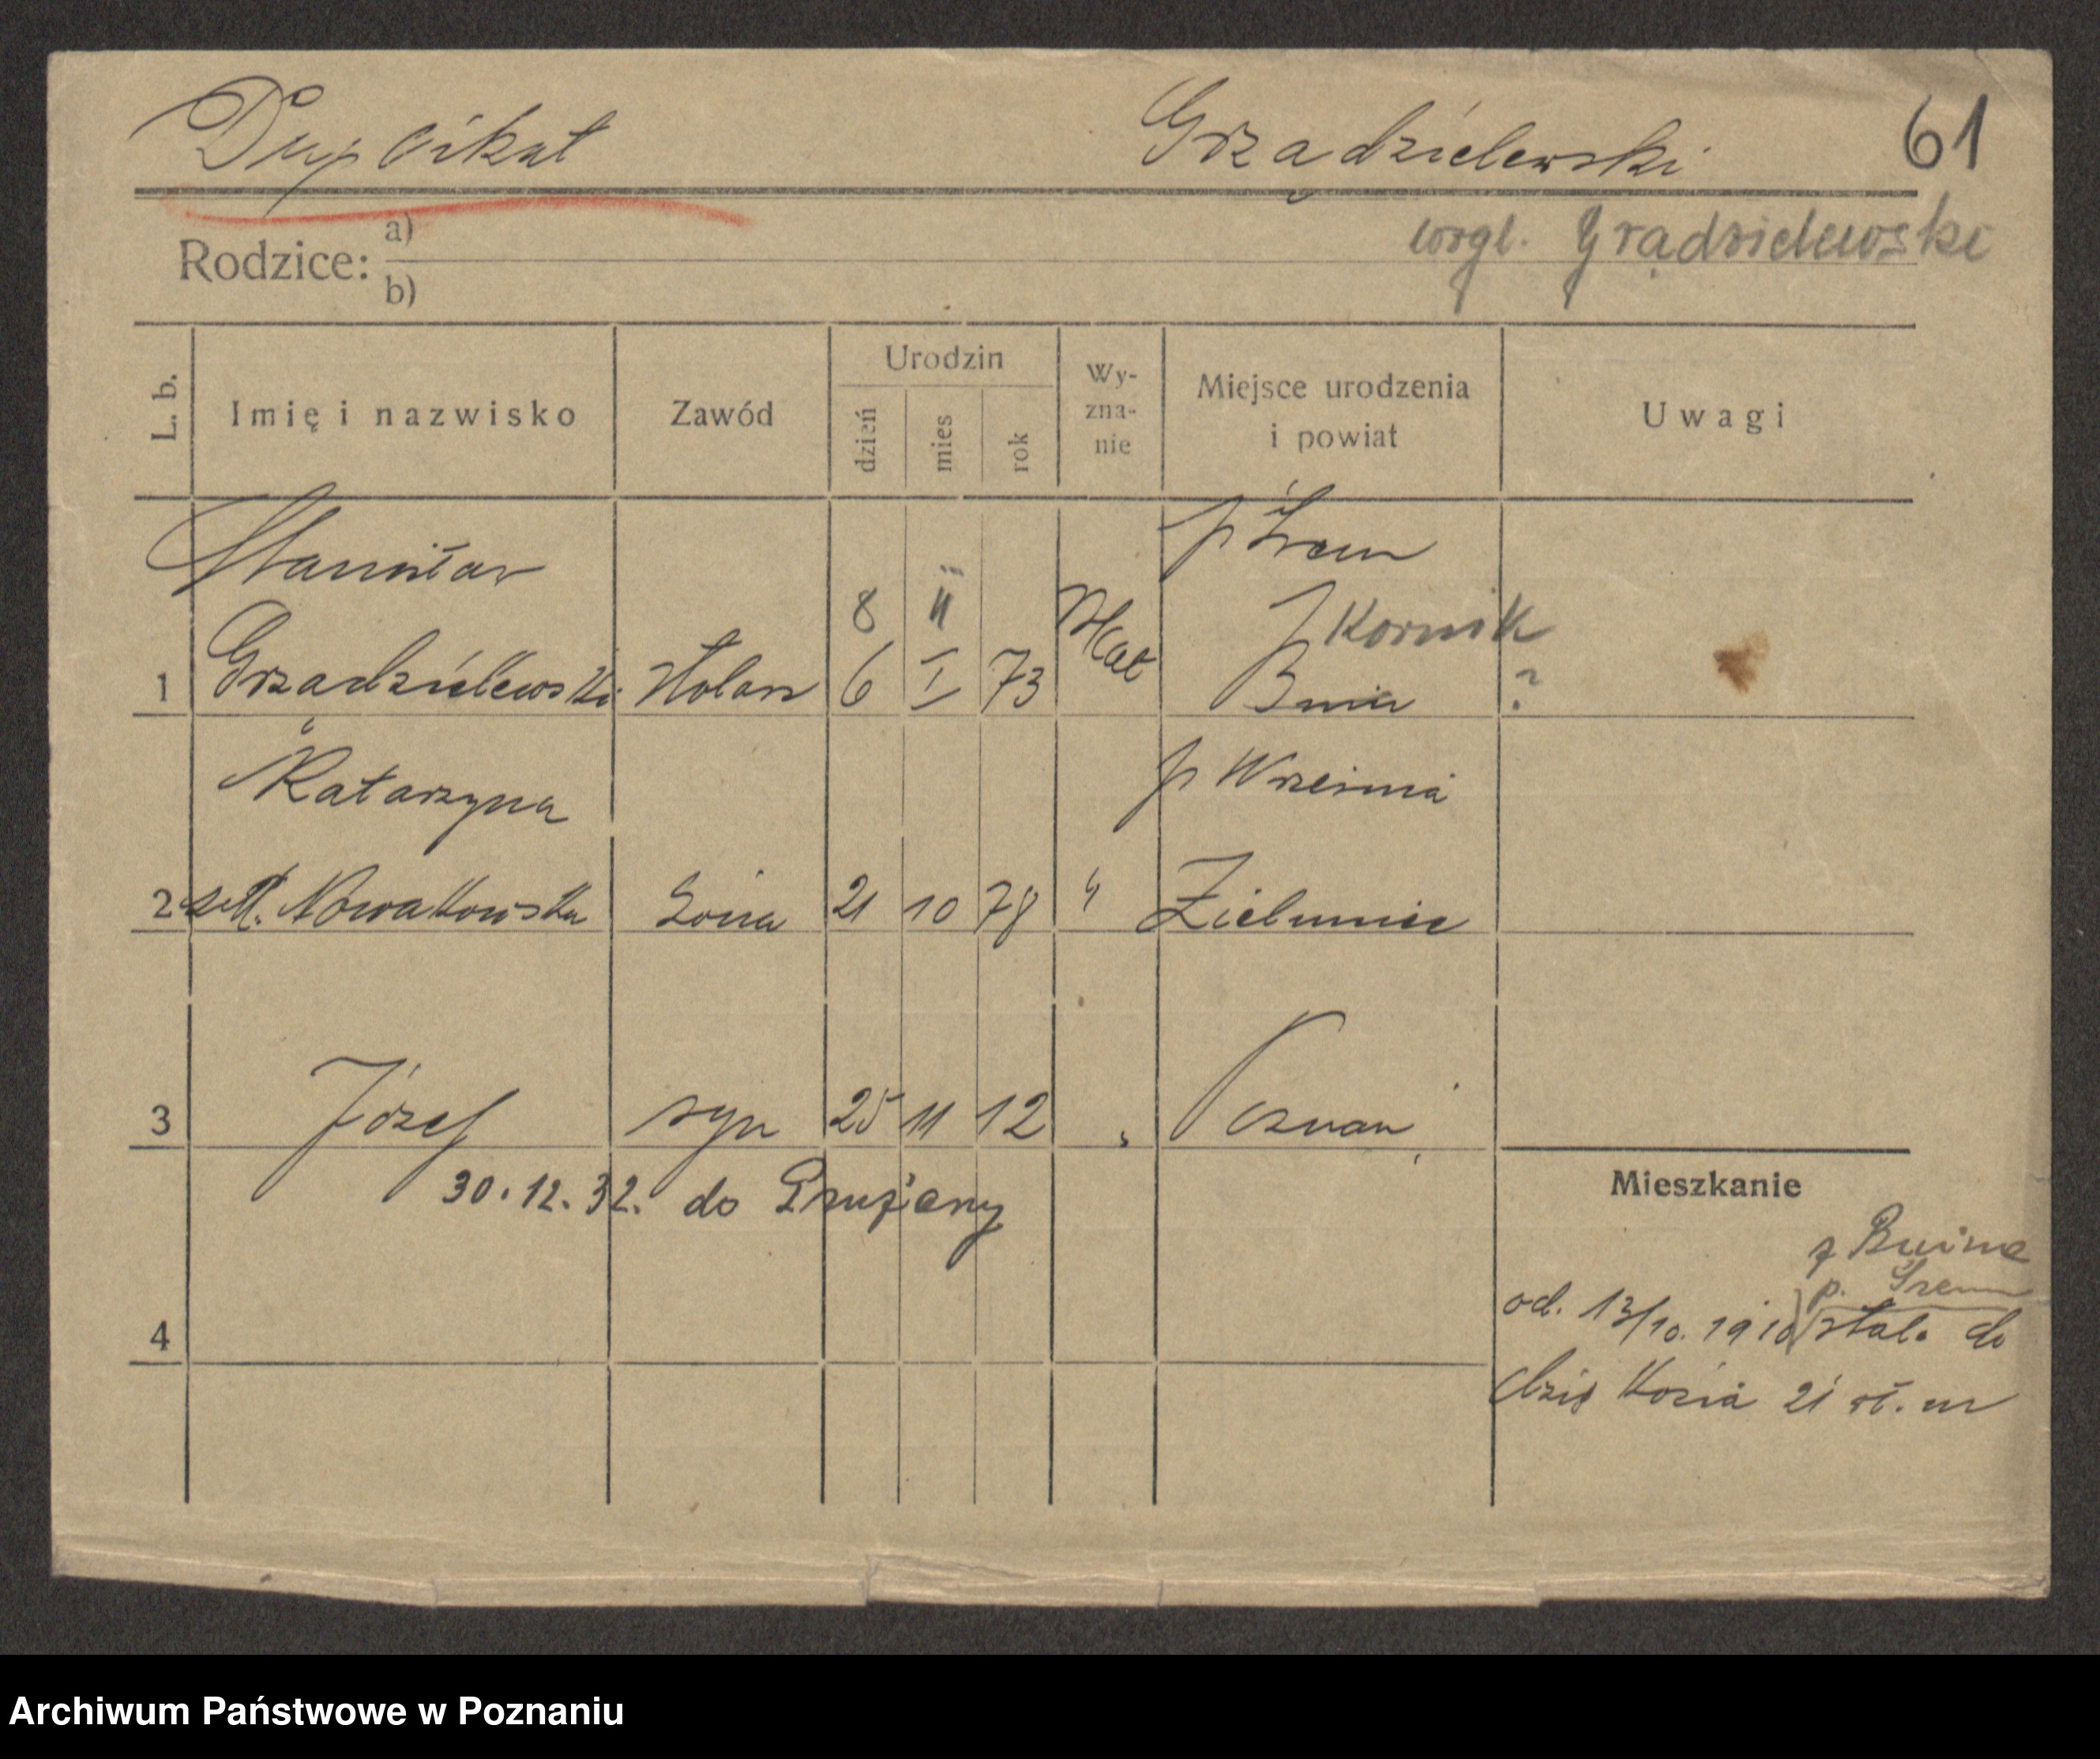 Duplikat Grządzielewski 61
Rodzice: a)
wzgl. Grądzielewski
b)
L. b. Imię i nazwisko Zawód Urodzin dzień mies rok Wy-zna-nie Miejsce urodzenia i powiat Uwagi
Stanisław p Śrem
8 II Kat Kornik
1 Grządzielewski stolarz 6 I 73 Bnin ?
Katarzyna p Września
2 Nowakowska żona 21 10 78 " Zieliniec
3 Józef syn 25 11 12 " Poznań
30.12.32. do Prużany
Mieszkanie
z Bnina
p. Śrem
4 od. 13/10. 1910 stale do
dziś Kozia 21
Archiwum Państwowe w Poznaniu